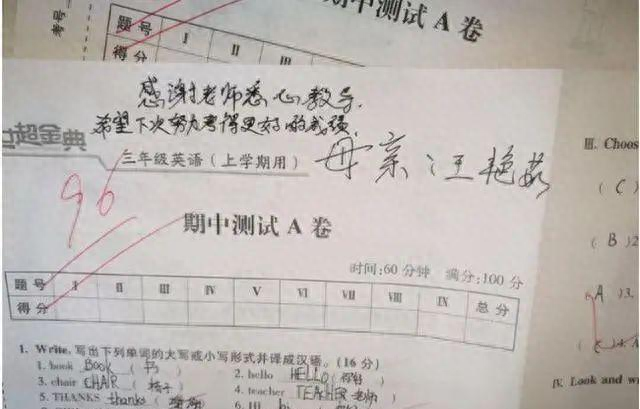 期中测试 A 卷
考号
题号 I II III
得分
感谢老师悉心教导,
希望下次努力考得更好的成绩。
三年级英语(上学期用)
母亲:汪艳茹
96
期中测试 A 卷
时间:60 分钟 满分:100 分
题号 I II III IV V VI VII VIII IX 总分
得分
I. Write. 写出下列单词的大写或小写形式并译成汉语。(16 分)
1. book BOOK (书) 2. hello HELLO (你好)
3. chair CHAIR (椅子) 4. teacher TEACHER (老师)
5. THANKS thanks (谢谢) 6. HI hi
III. Choos
( C )
( B )2
( A )3.
IV. Look and w